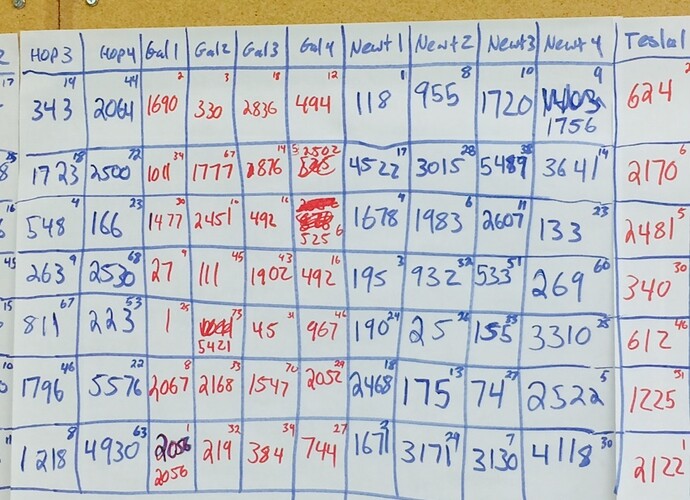 2 HOP3 HOP4 Gal1 Gal2 Gal3 Gal4 Newt1 Newt2 Newt3 Newt4 Tesla1
17 343 19 2064 44 1690 2 330 3 2836 18 494 12 118 1 955 8 1720 10 1756 9 624 2
1723 18 2500 72 1011 34 1777 67 2876 14 5 2502 4522 17 3015 28 5489 38 3641 14 2170 6
16 548 4 166 23 1477 30 2451 10 492 11 525 6 1678 4 1983 6 2607 11 133 23 2481 5
45 263 9 2530 68 27 9 111 45 1902 43 492 16 195 3 932 32 533 51 269 60 340 30
15 811 67 223 53 1 25 5421 73 45 31 967 46 190 24 25 26 155 33 3310 25 612 46
10 1796 46 5576 22 2067 8 2168 33 1547 70 2052 29 2468 18 175 13 74 27 2522 5 1225 51
11 1218 8 4930 63 2056 1 219 32 384 39 744 27 1671 2 3171 29 3130 7 4118 30 2122 1
2056